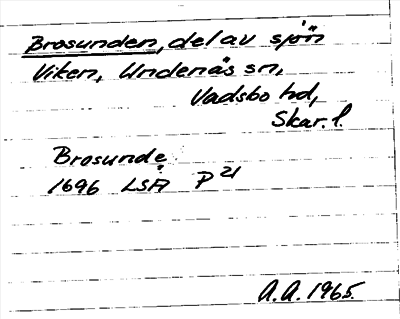 Brosunden, del av sjön
Viken, Undenäs sn,
Vadsbo hd,
Skar. l.
Brosunde
1696 LSA P 21
A.A. 1965.